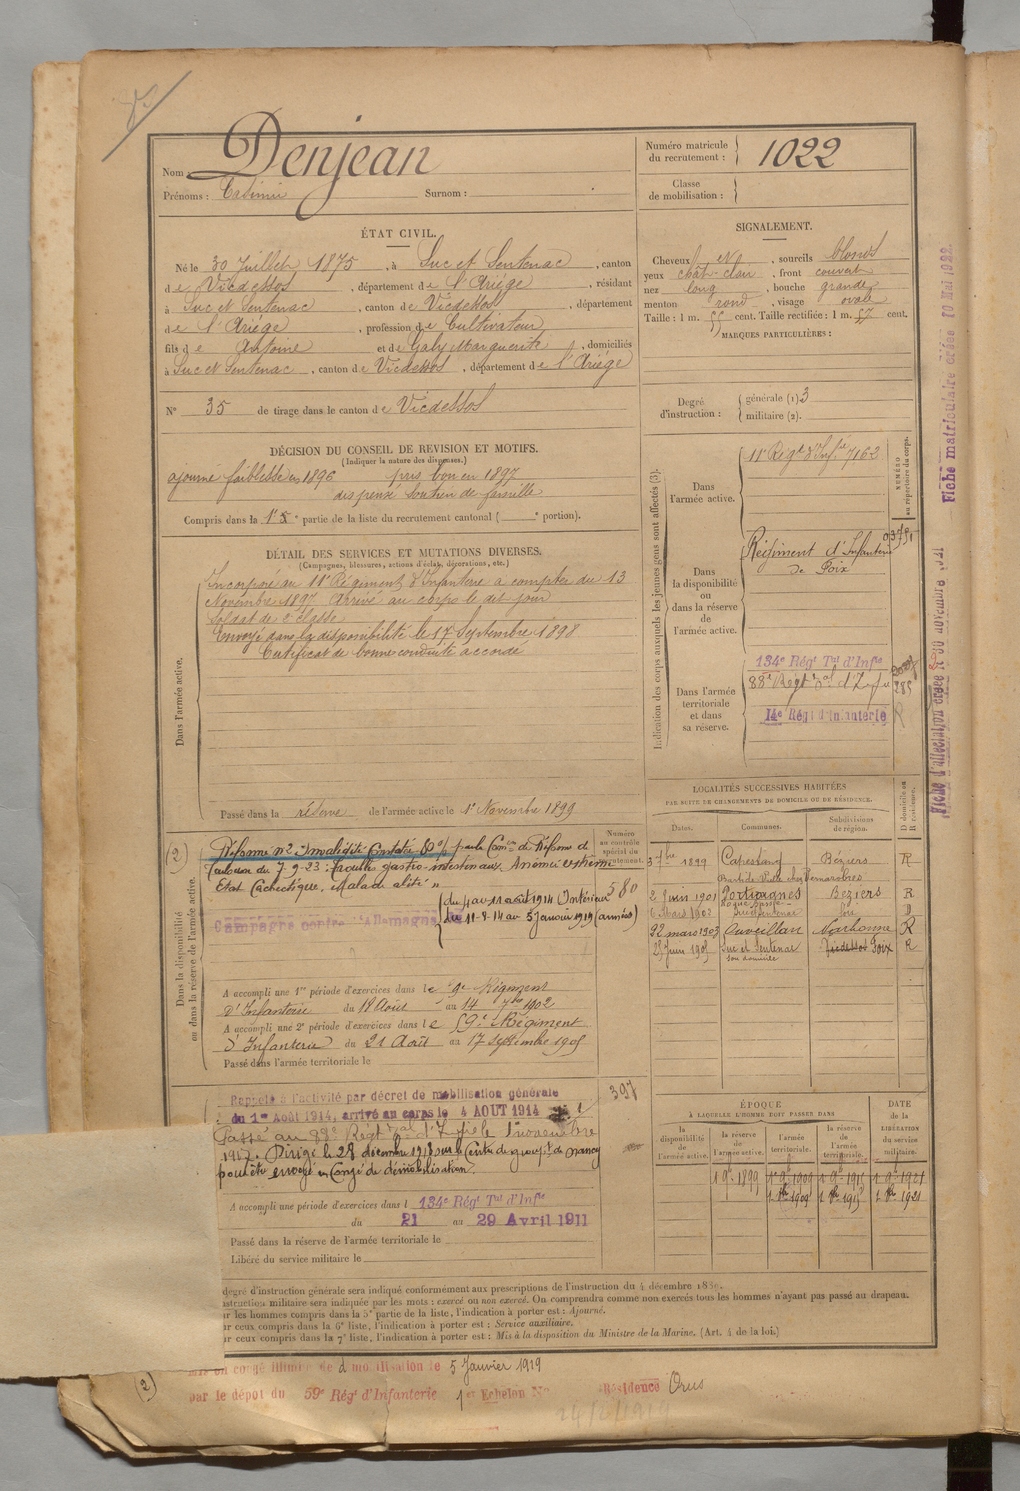 Nom Denjean
Prénoms : Casimir Surnom :
Numéro matricule du recrutement : 1022
Classe de mobilisation :
ÉTAT CIVIL.
Né le 30 Juillet 1875, à Suc et Sentenac, canton
de Vicdessos, département de l'Ariège, résidant
à Suc et Sentenac, canton de Vicdessos, département
de l'Ariège, profession de Cultivateur
fils de Antoine et de Galy Marguerite, domiciliés
à Suc et Sentenac, canton de Vicdessos, département de l'Ariège
N° 35 de tirage dans le canton de Vicdessos
SIGNALEMENT.
Cheveux et, sourcils blonds
yeux chât-clair, front couvert
nez long, bouche grande
menton rond, visage ovale
Taille : 1 m. 55 cent. Taille rectifiée : 1 m. 57 cent.
MARQUES PARTICULIÈRES :
Degré d'instruction : générale (1) 3
militaire (2).
DÉCISION DU CONSEIL DE REVISION ET MOTIFS.
(Indiquer la nature des dispenses.)
ajourné faiblesse en 1896 pris bon en 1897
dispensé soutien de famille
Compris dans la 1re partie de la liste du recrutement cantonal ( e portion).
DÉTAIL DES SERVICES ET MUTATIONS DIVERSES.
(Campagnes, blessures, actions d'éclat, décorations, etc.)
Dans l'armée active.
Incorporé au 11e Régiment d'Infanterie à compter du 13
Novembre 1897 Arrivé au corps le dit jour
Soldat de 2e classe
Envoyé dans la disponibilité le 17 Septembre 1898
Certificat de bonne conduite accordé
Passé dans la réserve de l'armée active le 1er Novembre 1899
Indication des corps auxquels les jeunes gens sont affectés (3).
NUMÉRO au répertoire du corps.
Dans l'armée active.
11e Régt d'Infie 7162
Dans la disponibilité ou dans la réserve de l'armée active.
Régiment d'Infanterie
de Foix
Dans l'armée territoriale et dans sa réserve.
134e Régt Tal d'Infie
88e Régt
285
14e Régt d'Infanterie R
Fiche matriculaire créée 10 Mai 1922
Dans la disponibilité ou dans la réserve de l'armée active.
Numéro au contrôle spécial du recrutement.
(2) Réforme n° 2 Invalidité Constatée 80% par la Comon de Réforme de
Toulouse du 7-9-23 : troubles gastro-intestinaux. Anémie extrême
Etat Cachectique, malade alité "
580
Campagne contre l'Allemagne
du 4 au 11 août 1914 (Intérieur
du 11-8-14 au 5 janvier 1919 (armées)
A accompli une 1re période d'exercices dans le 9e Régiment
d'Infanterie du 18 Août au 14 7bre 1902
A accompli une 2e période d'exercices dans le 59e Régiment
d'Infanterie du 21 Août au 17 septembre 1905
Passé dans l'armée territoriale le
LOCALITÉS SUCCESSIVES HABITÉES
PAR SUITE DE CHANGEMENTS DE DOMICILE OU DE RÉSIDENCE.
Dates. Communes. Subdivisions de région. D domicile ou R résidence.
3 7bre 1899 Capestang Béziers R
2 Juin 1901 Portiragnes Béziers R
6 Mars 1903 Suc et Sentenac Foix D
22 mars 1903 Cuveillan Narbonne R
25 Juin 1905 Suc et Sentenac Vicdessos Foix R
son domicile
397
Rappelé à l'activité par décret de mobilisation générale
du 1er Août 1914, arrivé au corps le 4 AOUT 1914
Passé au 88e Régt d'Infie le 1er novembre
1917. Dirigé le 28 décembre 1918 sur le Centre de groupt de Nancy
pour être envoyé en Congé de démobilisation.
A accompli une période d'exercices dans l 134e Régt Tal d'Infie
du 21 au 29 Avril 1911
Passé dans la réserve de l'armée territoriale le
Libéré du service militaire le
ÉPOQUE
À LAQUELLE L'HOMME DOIT PASSER DANS
DATE de la LIBÉRATION du service militaire.
la disponibilité de l'armée active. la réserve de l'armée active. l'armée territoriale. la réserve de l'armée territoriale.
1 9e 1899 1 9e 1909 1 9e 1915 1 9e 1921
1 8e 1909 1 8e 1915 1 8e 1921
degré d'instruction générale sera indiqué conformément aux prescriptions de l'instruction du 4 décembre 1889.
nstruction militaire sera indiquée par les mots : exercé ou non exercé. On comprendra comme non exercés tous les hommes n'ayant pas passé au drapeau.
ur les hommes compris dans la 5e partie de la liste, l'indication à porter est : Ajourné.
ur ceux compris dans la 6e liste, l'indication à porter est : Service auxiliaire.
ur ceux compris dans la 7e liste, l'indication à porter est : Mis à la disposition du Ministre de la Marine. (Art. 4 de la loi.)
(2) Mis en congé illimité de démobilisation le 5 Janvier 1919
par le dépôt du 59e Régt d'Infanterie 1er Echelon N° Résidence Orus